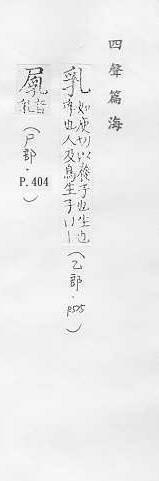 四聲篇海
乳 切以養子也生也
也人及鳥生子
(乙部·P575)
音
乳
(尸部·P.404)